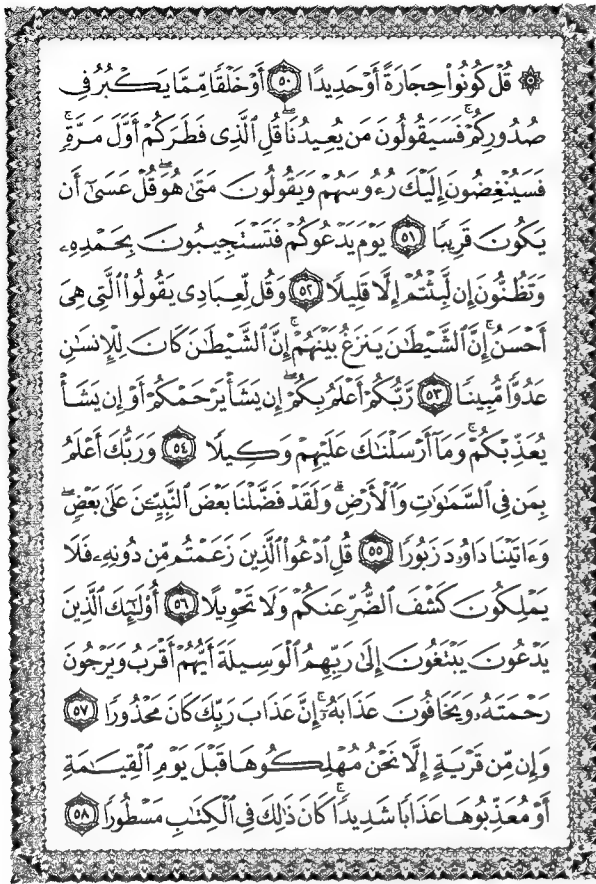 ۞ قُلْ كُونُوا۟ حِجَارَةً أَوْ حَدِيدًا ٥٠ أَوْ خَلْقًا مِّمَّا يَكْبُرُ فِى
صُدُورِكُمْ ۚ فَسَيَقُولُونَ مَن يُعِيدُنَا ۖ قُلِ ٱلَّذِى فَطَرَكُمْ أَوَّلَ مَرَّةٍ ۚ
فَسَيُنْغِضُونَ إِلَيْكَ رُءُوسَهُمْ وَيَقُولُونَ مَتَىٰ هُوَ ۖ قُلْ عَسَىٰٓ أَن
يَكُونَ قَرِيبًا ٥١ يَوْمَ يَدْعُوكُمْ فَتَسْتَجِيبُونَ بِحَمْدِهِۦ
وَتَظُنُّونَ إِن لَّبِثْتُمْ إِلَّا قَلِيلًا ٥٢ وَقُل لِّعِبَادِى يَقُولُوا۟ ٱلَّتِى هِىَ
أَحْسَنُ ۚ إِنَّ ٱلشَّيْطَٰنَ يَنزَغُ بَيْنَهُمْ ۚ إِنَّ ٱلشَّيْطَٰنَ كَانَ لِلْإِنسَٰنِ
عَدُوًّا مُّبِينًا ٥٣ رَّبُّكُمْ أَعْلَمُ بِكُمْ ۖ إِن يَشَأْ يَرْحَمْكُمْ أَوْ إِن يَشَأْ
يُعَذِّبْكُمْ ۚ وَمَآ أَرْسَلْنَٰكَ عَلَيْهِمْ وَكِيلًا ٥٤ وَرَبُّكَ أَعْلَمُ
بِمَن فِى ٱلسَّمَٰوَٰتِ وَٱلْأَرْضِ ۗ وَلَقَدْ فَضَّلْنَا بَعْضَ ٱلنَّبِيِّۦنَ عَلَىٰ بَعْضٍ ۖ
وَءَاتَيْنَا دَاوُۥدَ زَبُورًا ٥٥ قُلِ ٱدْعُوا۟ ٱلَّذِينَ زَعَمْتُم مِّن دُونِهِۦ فَلَا
يَمْلِكُونَ كَشْفَ ٱلضُّرِّ عَنكُمْ وَلَا تَحْوِيلًا ٥٦ أُو۟لَٰٓئِكَ ٱلَّذِينَ
يَدْعُونَ يَبْتَغُونَ إِلَىٰ رَبِّهِمُ ٱلْوَسِيلَةَ أَيُّهُمْ أَقْرَبُ وَيَرْجُونَ
رَحْمَتَهُۥ وَيَخَافُونَ عَذَابَهُۥٓ ۚ إِنَّ عَذَابَ رَبِّكَ كَانَ مَحْذُورًا ٥٧
وَإِن مِّن قَرْيَةٍ إِلَّا نَحْنُ مُهْلِكُوهَا قَبْلَ يَوْمِ ٱلْقِيَٰمَةِ
أَوْ مُعَذِّبُوهَا عَذَابًا شَدِيدًا ۚ كَانَ ذَٰلِكَ فِى ٱلْكِتَٰبِ مَسْطُورًا ٥٨